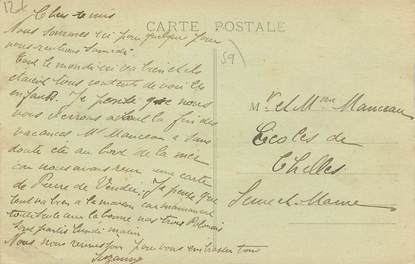 CARTE POSTALE
Chers amis
Nous sommes ici pour quelques jours
nous rentrons samedi.
Tout le monde ici va bien et ils
étaient tous contents de voir les
enfants. Je pense que nous
vous verrons avant la fin des
vacances Mr Manceau a sans
doute été au bord de la mer
car nous avons reçu une carte
de Pierre de Vendée. Je pense que
tout va bien à la maison car maman est
toute seule avec la bonne nos trois
sont partis lundi matin
Nous nous réunissons pour vous embrasser tous
Suzanne
59
Mr et Mme Manceau
Ecoles de
Chelles
Seine et Marne